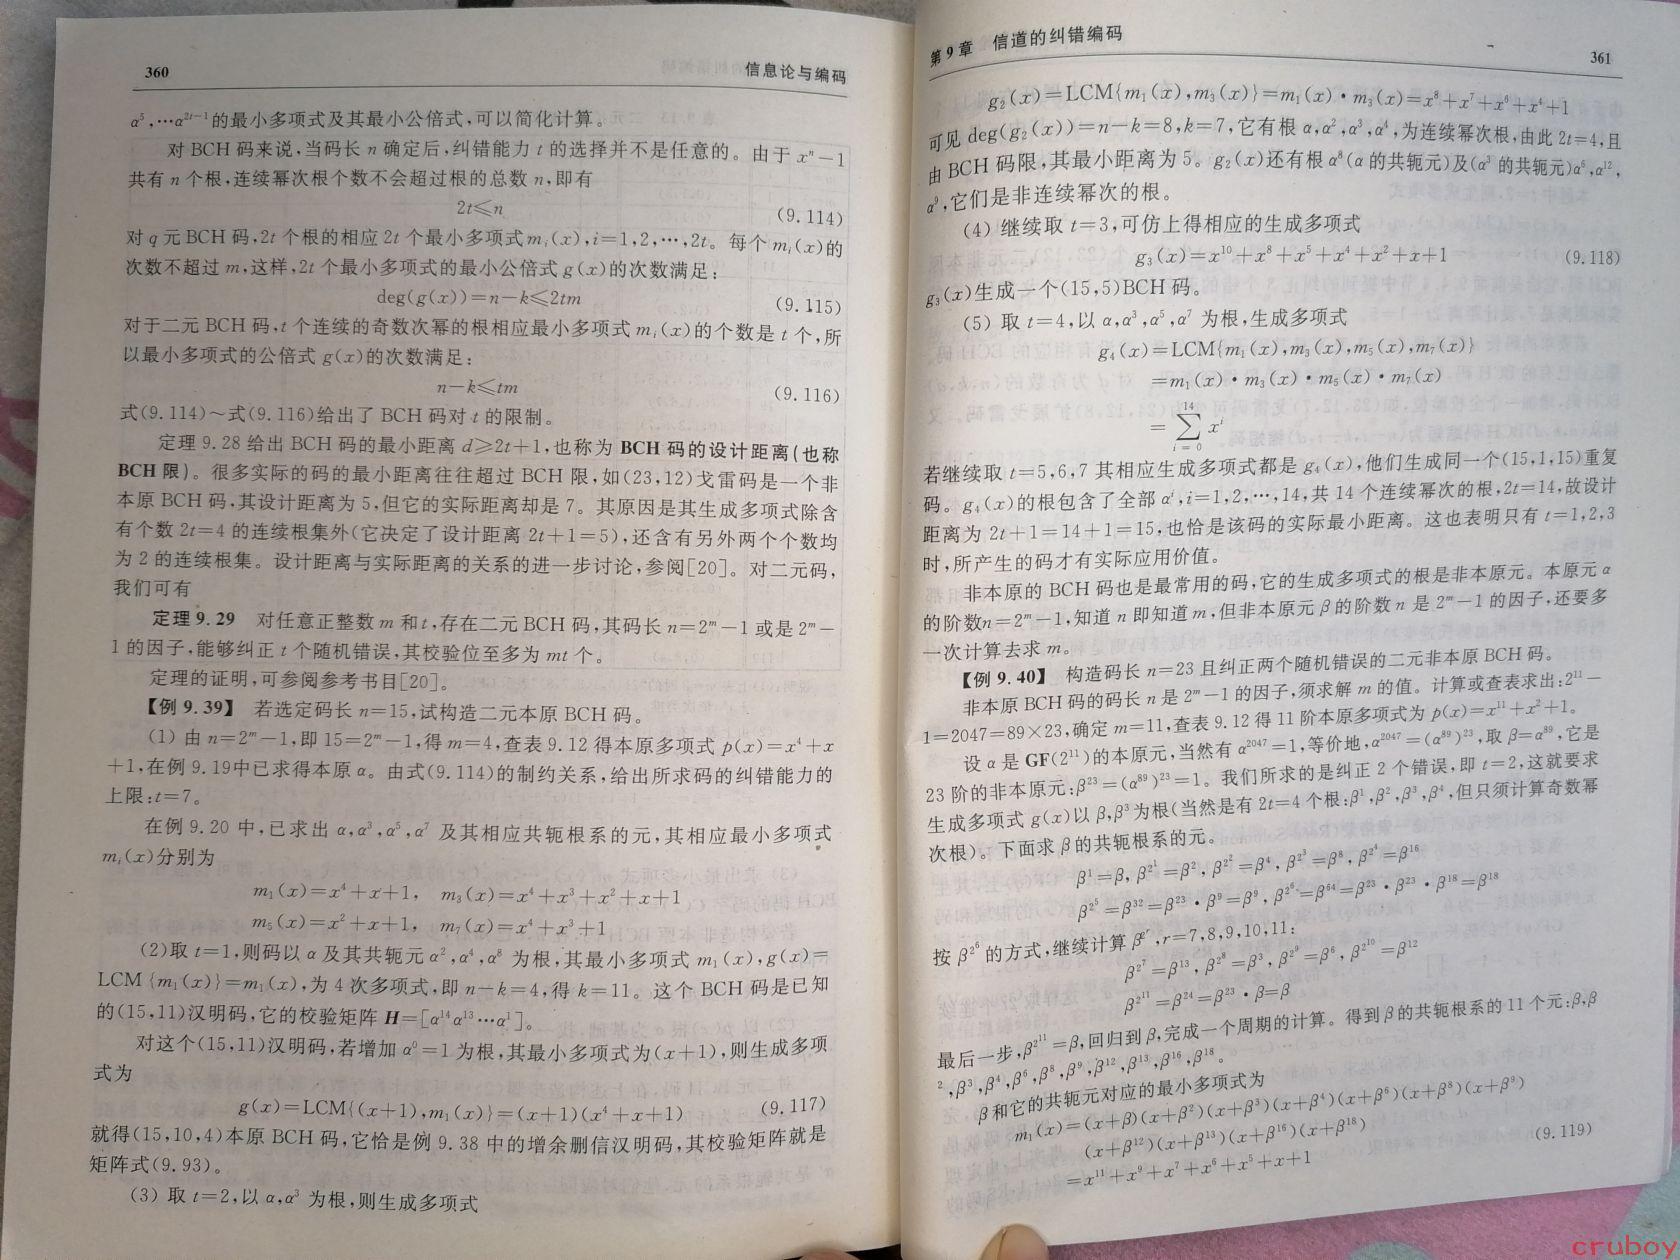 360
信息论与编码
α⁵,…α²ᵗ⁻¹的最小多项式及其最小公倍式,可以简化计算。
对 BCH 码来说,当码长 n 确定后,纠错能力 t 的选择并不是任意的。由于 xⁿ−1
共有 n 个根,连续幂次根个数不会超过根的总数 n,即有
2t⩽n (9.114)
对 q 元 BCH 码,2t 个根的相应 2t 个最小多项式 mᵢ(x),i=1,2,…,2t。每个 mᵢ(x)的
次数不超过 m,这样,2t 个最小多项式的最小公倍式 g(x)的次数满足:
deg(g(x))=n−k⩽2tm (9.115)
对于二元 BCH 码,t 个连续的奇数次幂的根相应最小多项式 mᵢ(x)的个数是 t 个,所
以最小多项式的公倍式 g(x)的次数满足:
n−k⩽tm (9.116)
式(9.114)~式(9.116)给出了 BCH 码对 t 的限制。
定理 9.28 给出 BCH 码的最小距离 d⩾2t+1,也称为 BCH 码的设计距离(也称
BCH 限)。很多实际的码的最小距离往往超过 BCH 限,如(23,12)戈雷码是一个非
本原 BCH 码,其设计距离为 5,但它的实际距离却是 7。其原因是其生成多项式除含
有个数 2t=4 的连续根集外(它决定了设计距离 2t+1=5),还含有另外两个个数均
为 2 的连续根集。设计距离与实际距离的关系的进一步讨论,参阅[20]。对二元码,
我们可有
定理 9.29 对任意正整数 m 和 t,存在二元 BCH 码,其码长 n=2ᵐ−1 或是 2ᵐ−
1 的因子,能够纠正 t 个随机错误,其校验位至多为 mt 个。
定理的证明,可参阅参考书目[20]。
【例 9.39】 若选定码长 n=15,试构造二元本原 BCH 码。
(1) 由 n=2ᵐ−1,即 15=2ᵐ−1,得 m=4,查表 9.12 得本原多项式 p(x)=x⁴+x
+1,在例 9.19中已求得本原 α。由式(9.114)的制约关系,给出所求码的纠错能力的
上限:t=7。
在例 9.20 中,已求出 α,α³,α⁵,α⁷ 及其相应共轭根系的元,其相应最小多项式
mᵢ(x)分别为
m₁(x)=x⁴+x+1, m₃(x)=x⁴+x³+x²+x+1
m₅(x)=x²+x+1, m₇(x)=x⁴+x³+1
(2)取 t=1,则码以 α 及其共轭元 α²,α⁴,α⁸ 为根,其最小多项式 m₁(x),g(x)=
LCM{m₁(x)}=m₁(x),为 4 次多项式,即 n−k=4,得 k=11。这个 BCH 码是已知
的(15,11)汉明码,它的校验矩阵 H=[α¹⁴α¹³…α¹]。
对这个(15,11)汉明码,若增加 α⁰=1 为根,其最小多项式为(x+1),则生成多项
式为
g(x)=LCM{(x+1),m₁(x)}=(x+1)(x⁴+x+1) (9.117)
就得(15,10,4)本原 BCH 码,它恰是例 9.38 中的增余删信汉明码,其校验矩阵就是
矩阵式(9.93)。
(3) 取 t=2,以 α,α³ 为根,则生成多项式
第 9 章 信道的纠错编码
361
g₂(x)=LCM{m₁(x),m₃(x)}=m₁(x)·m₃(x)=x⁸+x⁷+x⁶+x⁴+1
可见 deg(g₂(x))=n−k=8,k=7,它有根 α,α²,α³,α⁴,为连续幂次根,由此 2t=4,且
由 BCH 码限,其最小距离为 5。g₂(x)还有根 α⁸(α 的共轭元)及(α³ 的共轭元)α⁶,α¹²,
α⁹,它们是非连续幂次的根。
(4) 继续取 t=3,可仿上得相应的生成多项式
g₃(x)=x¹⁰+x⁸+x⁵+x⁴+x²+x+1 (9.118)
g₃(x)生成一个(15,5)BCH 码。
(5) 取 t=4,以 α,α³,α⁵,α⁷ 为根,生成多项式
g₄(x)=LCM{m₁(x),m₃(x),m₅(x),m₇(x)}
=m₁(x)·m₃(x)·m₅(x)·m₇(x)
14
= ∑ xⁱ
i=0
若继续取 t=5,6,7 其相应生成多项式都是 g₄(x),他们生成同一个(15,1,15)重复
码。g₄(x)的根包含了全部 αⁱ,i=1,2,…,14,共 14 个连续幂次的根,2t=14,故设计
距离为 2t+1=14+1=15,也恰是该码的实际最小距离。这也表明只有 t=1,2,3
时,所产生的码才有实际应用价值。
非本原的 BCH 码也是最常用的码,它的生成多项式的根是非本原元。本原元 α
的阶数n=2ᵐ−1,知道 n 即知道 m,但非本原元 β 的阶数 n 是 2ᵐ−1 的因子,还要多
一次计算去求 m。
【例 9.40】 构造码长 n=23 且纠正两个随机错误的二元非本原 BCH 码。
非本原 BCH 码的码长 n 是 2ᵐ−1 的因子,须求解 m 的值。计算或查表求出:2¹¹−
1=2047=89×23,确定 m=11,查表 9.12 得 11 阶本原多项式为 p(x)=x¹¹+x²+1。
设 α 是 GF(2¹¹)的本原元,当然有 α²⁰⁴⁷=1,等价地,α²⁰⁴⁷=(α⁸⁹)²³,取 β=α⁸⁹,它是
23 阶的非本原元:β²³=(α⁸⁹)²³=1。我们所求的是纠正 2 个错误,即 t=2,这就要求
生成多项式 g(x)以 β,β³ 为根(当然是有 2t=4 个根:β¹,β²,β³,β⁴,但只须计算奇数幂
次根)。下面求 β 的共轭根系的元。
β¹=β, β^(2¹)=β², β^(2²)=β⁴, β^(2³)=β⁸, β^(2⁴)=β¹⁶
β^(2⁵)=β³²=β²³·β⁹=β⁹, β^(2⁶)=β⁶⁴=β²³·β²³·β¹⁸=β¹⁸
按 β^(2⁶) 的方式,继续计算 β^(2ʳ),r=7,8,9,10,11:
β^(2⁷)=β¹³, β^(2⁸)=β³, β^(2⁹)=β⁶, β^(2¹⁰)=β¹²
β^(2¹¹)=β²⁴=β²³·β=β
最后一步,β^(2¹¹)=β,回归到 β,完成一个周期的计算。得到 β 的共轭根系的 11 个元:β,β
²,β³,β⁴,β⁶,β⁸,β⁹,β¹²,β¹³,β¹⁶,β¹⁸。
β 和它的共轭元对应的最小多项式为
m₁(x)=(x+β)(x+β²)(x+β³)(x+β⁴)(x+β⁶)(x+β⁸)(x+β⁹)
(x+β¹²)(x+β¹³)(x+β¹⁶)(x+β¹⁸) (9.119)
=x¹¹+x⁹+x⁷+x⁶+x⁵+x+1
cruboy